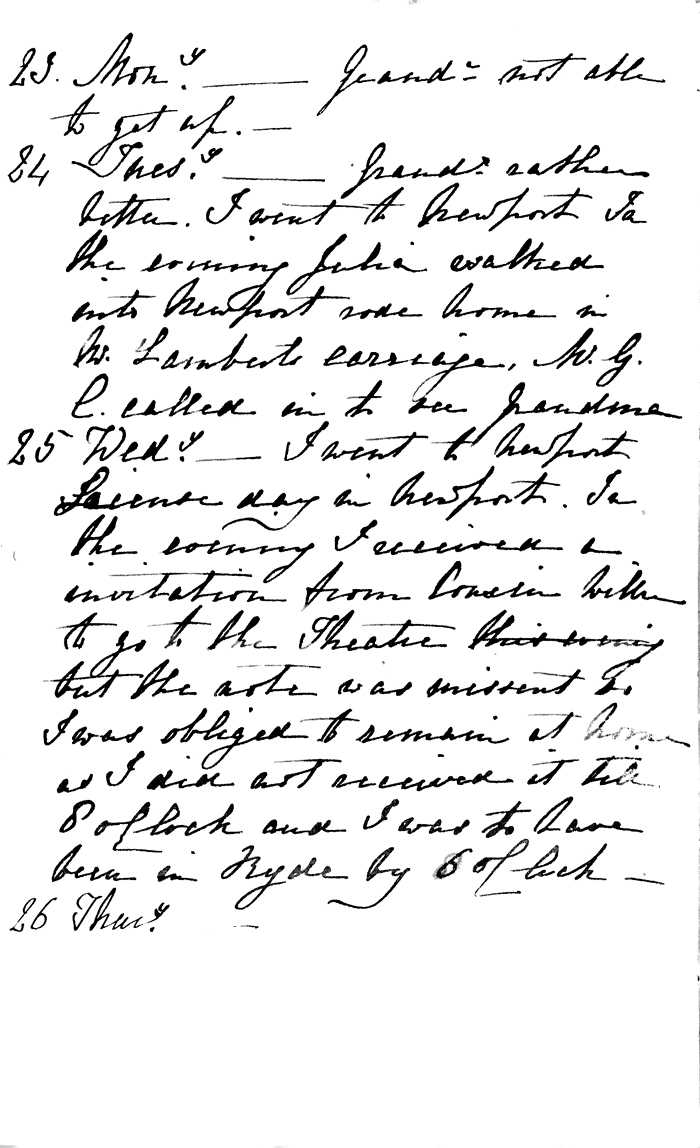 23. Mony. — Grandr not able
to get up. —
24 Tuesy. — Grandr rather
better. I went to Newport In
the evening Julia walked
into Newport rode home in
W. Lamberts carriage, W. G.
C. called in to see Grandma
25 Wedy. — I went to Newport
License day in Newport. In
the evening I received a
invitation from Cousin Willm
to go to the Theatre this evening
but the note was missent so
I was obliged to remain at home
as I did not received it till
8 oClock and I was to have
been in Ryde by 6 oClock —
26 Thury. —